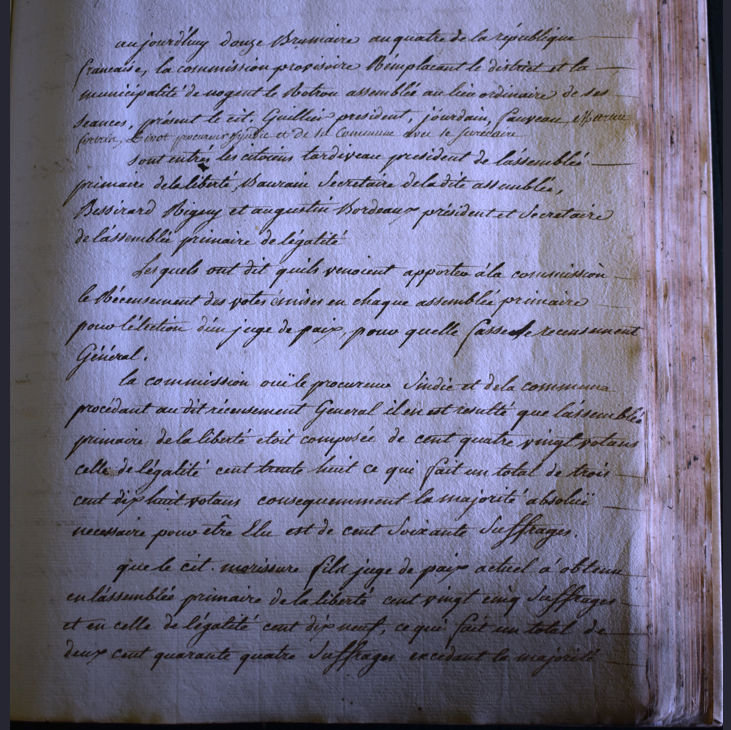 aujourd'huy douze Brumaire an quatre de la république
francaise, la commission provisoire Remplacant le district et la
municipalité de nogent le Rotrou assemblé au lieu ordinaire de ses
seances, present le cit. Guillier president, jourdain, fauveau,
procureur sindic et de la Commune avec le secretaire
sont entres les citoiens tardiveau president de lassemblée
primaire de la liberté, Baurain Secretaire de la dite assemblée,
Bessirard Rigny et augustin Bordeaux président et Secretaire
de lassemblée primaire de légalité
Lesquels ont dit quils venoient apporter à la commission
le Récensement des votes émises en chaque assemblée primaire
pour lélection d'un juge de paix, pour quelle fasse le recensement
Général.
la commission ouï le procureur Sindic et de la commune
procédant au dit récensement General il en est resulté que lassemblée
primaire de la liberté etoit composée de cent quatre vingt votans
celle de légalité cent trente huit ce qui fait un total de trois
cent dix huit votans consequemment la majorité absolüe
necessaire pour etre Elu est de cent Soixante Suffrages.
que le cit. morissure fils juge de paix actuel a obtenu
en lassemblée primaire de la liberté cent vingt cinq Suffrages
et en celle de légalité cent dix neuf, ce qui fait un total de
deux cent quarante quatre Suffrages excedant la majorité